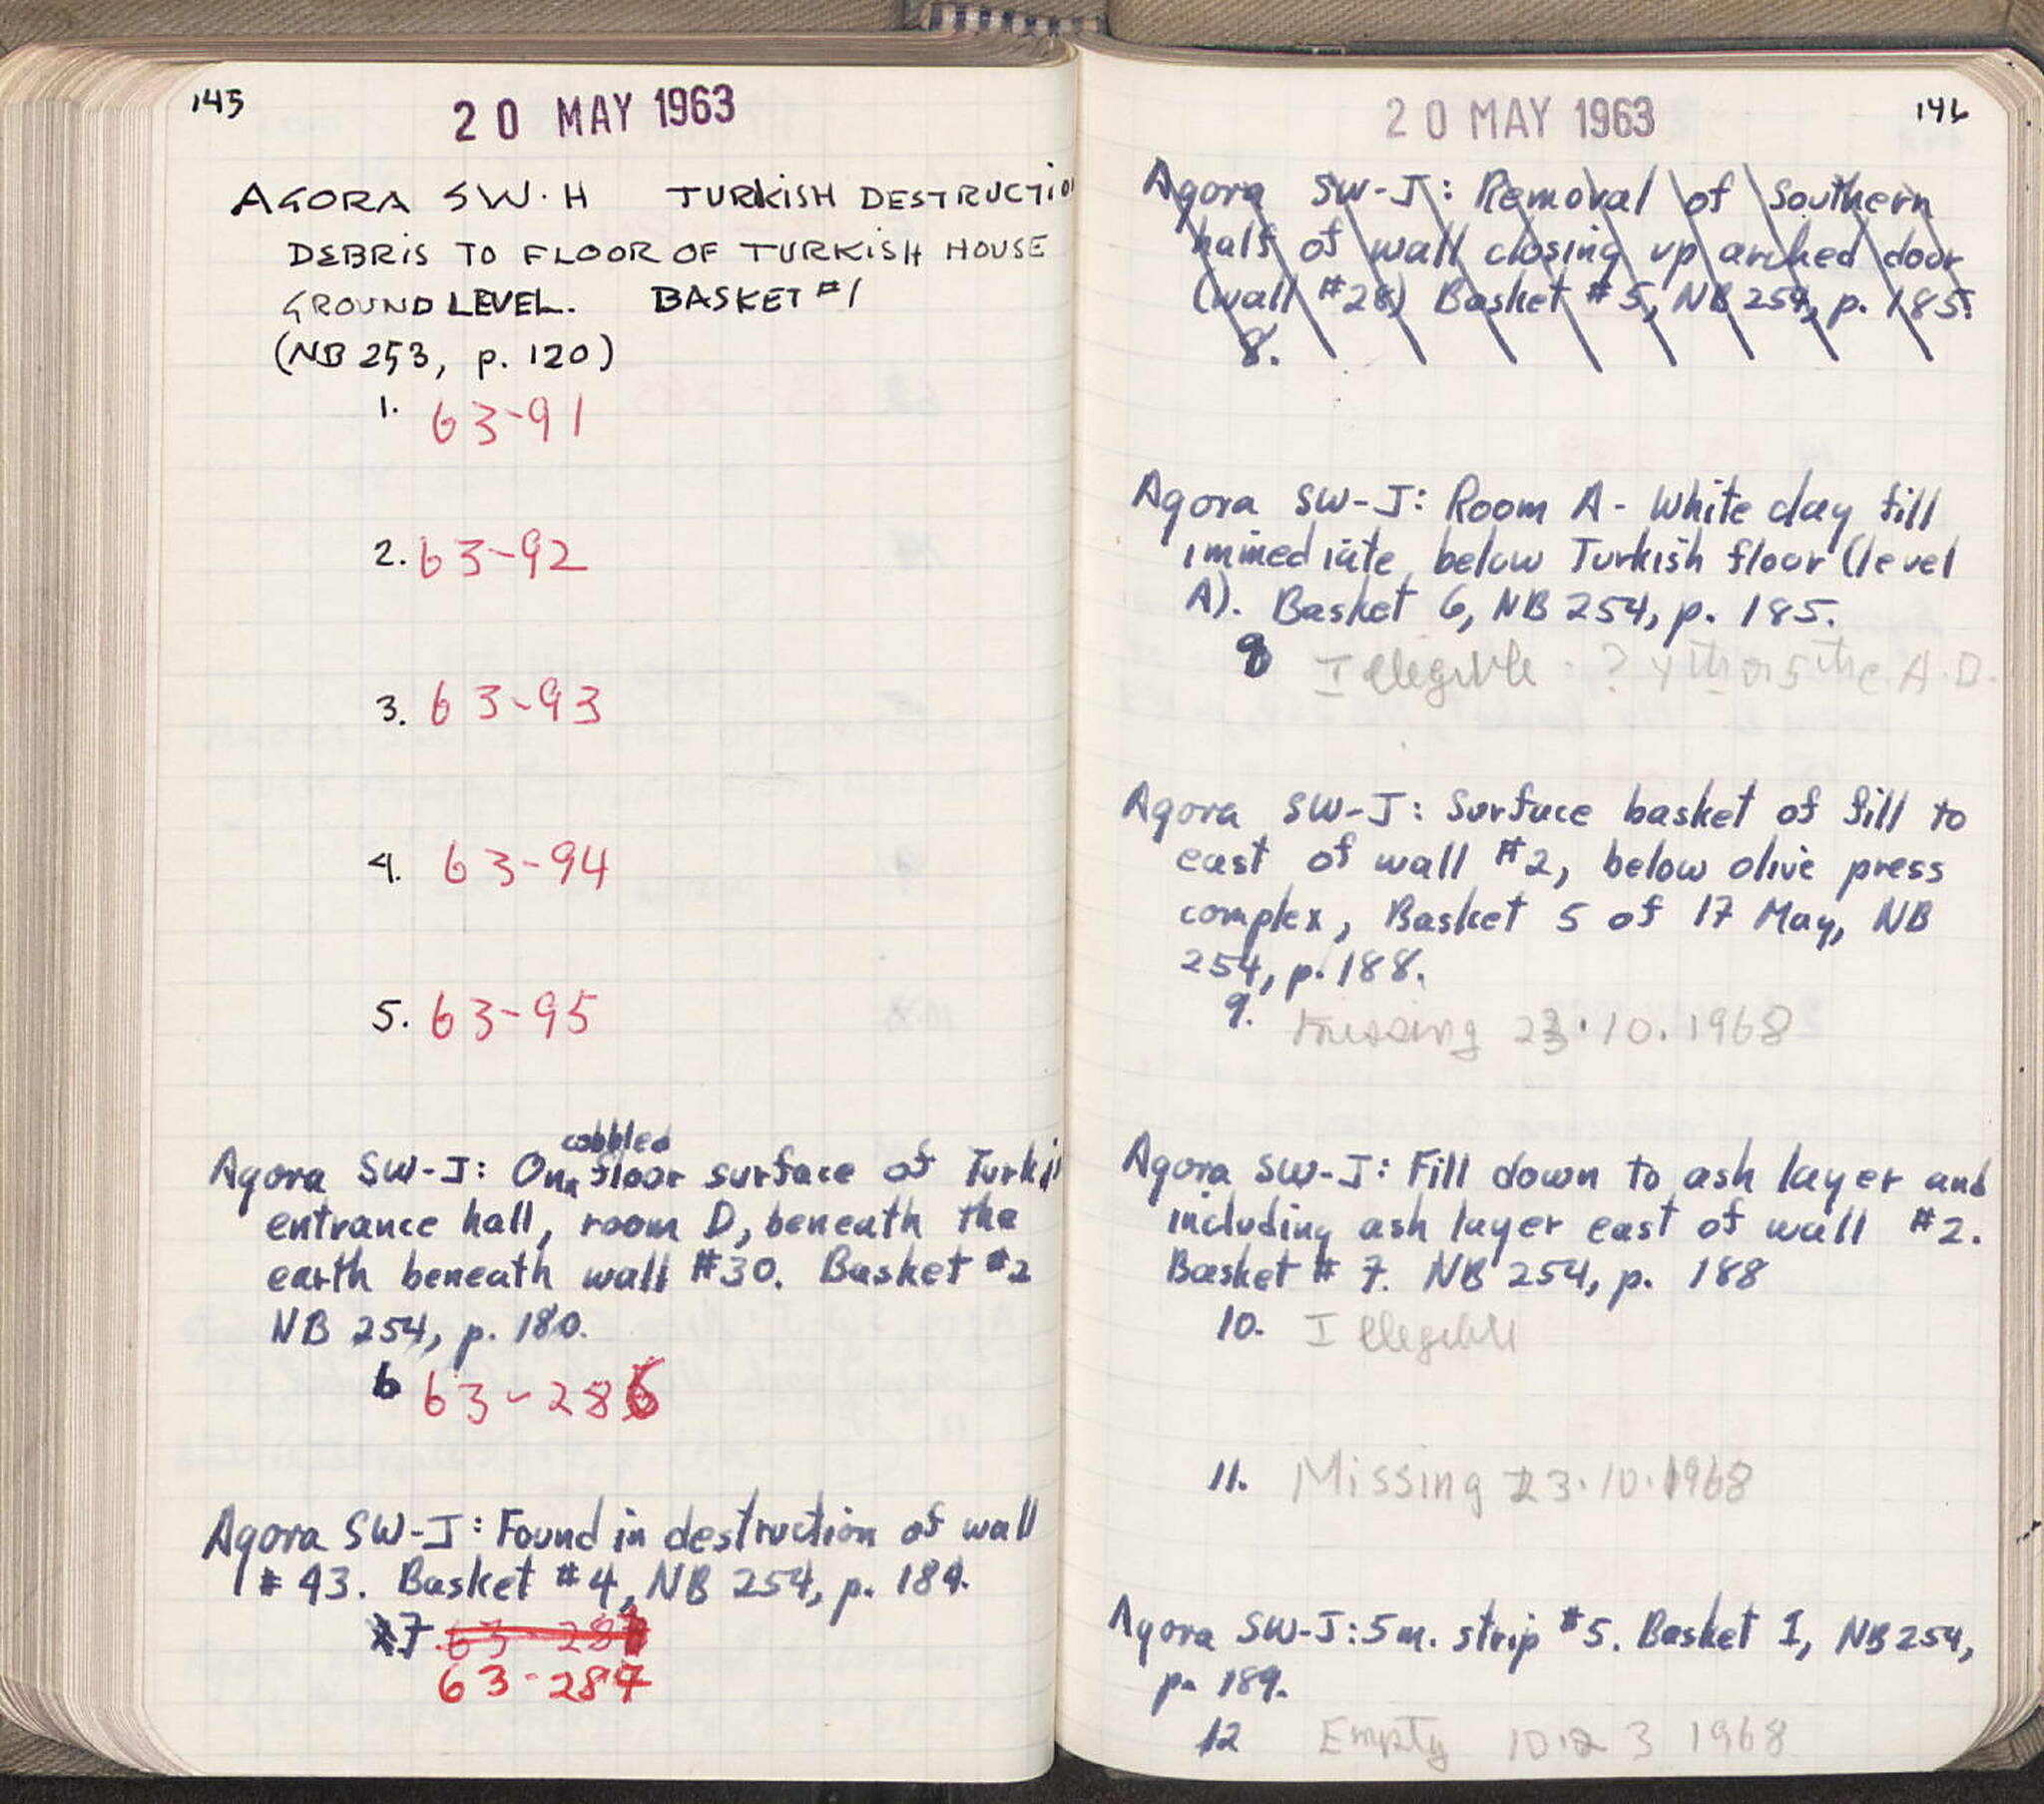 145
20 MAY 1963
AGORA SW·H TURKISH DESTRUCTIO
DEBRIS TO FLOOR OF TURKISH HOUSE
GROUND LEVEL. BASKET #1
(NB 253, p. 120)
1. 63-91
2. 63-92
3. 63-93
4. 63-94
5. 63-95
cobbled
Agora SW-J: On floor surface of Turki
entrance hall, room D, beneath the
earth beneath wall #30. Basket #2
NB 254, p. 180.
6 63-286
Agora SW-J: Found in destruction of wall
#43. Basket #4, NB 254, p. 184.
7 63-287
63-287
20 MAY 1963
146
Agora SW-J: Removal of Southern
half of wall closing up arched door
(wall #28) Basket #5, NB 254, p. 185.
8.
Agora SW-J: Room A - White clay fill
immediate below Turkish floor (level
A). Basket 6, NB 254, p. 185.
8 Illegible . ? 4th or 5th c. A.D.
Agora SW-J: Surface basket of fill to
east of wall #2, below olive press
complex, Basket 5 of 17 May, NB
254, p. 188.
9. Missing 23.10.1968
Agora SW-J: Fill down to ash layer and
including ash layer east of wall #2.
Basket # 7. NB 254, p. 188
10. Illegible
11. Missing 23.10.1968
Agora SW-J: 5 m. strip #5. Basket I, NB 254,
p. 189.
12 Empty 1968